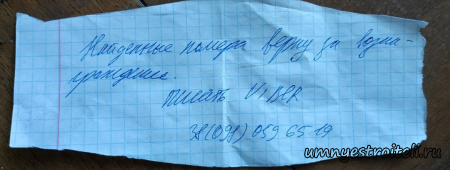 Найденные номера верну за возна-
граждение.
писать VIBER
38(098) 059 65 19
umnyestroiteli.ru